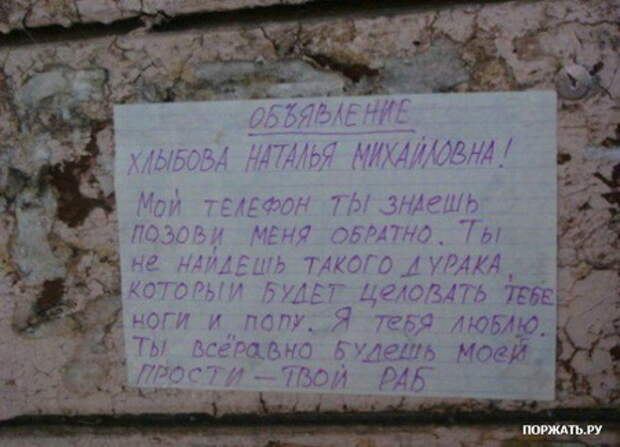 ОБЪЯВЛЕНИЕ
ХЛЫБОВА НАТАЛЬЯ МИХАЙЛОВНА!
МОЙ ТЕЛЕФОН ТЫ ЗНАЕШЬ
ПОЗОВИ МЕНЯ ОБРАТНО. ТЫ
НЕ НАЙДЕШЬ ТАКОГО ДУРАКА,
КОТОРЫЙ БУДЕТ ЦЕЛОВАТЬ ТЕБЕ
НОГИ И ПОПУ. Я ТЕБЯ ЛЮБЛЮ.
ТЫ ВСЁРАВНО БУДЕШЬ МОЕЙ
ПРОСТИ — ТВОЙ РАБ
ПОРЖАТЬ.РУ